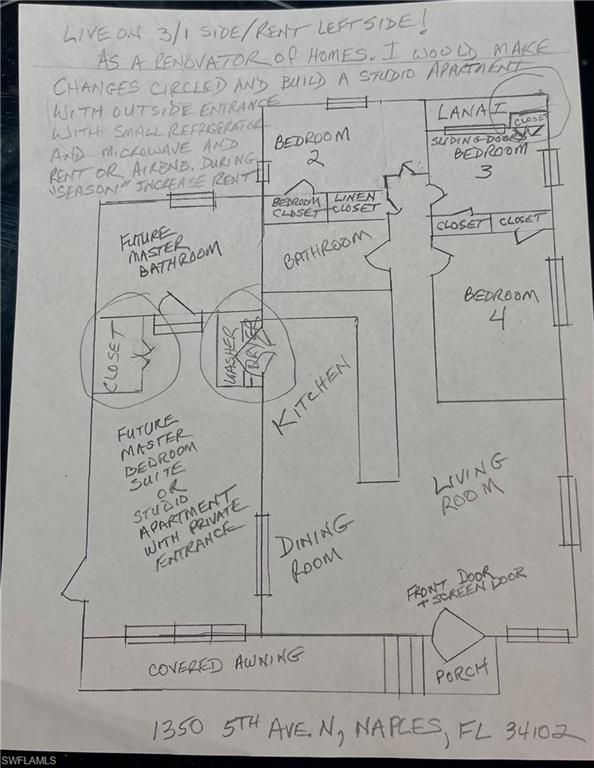 LIVE ON 3/1 SIDE/RENT LEFT SIDE!
AS A RENOVATOR OF HOMES. I WOULD MAKE
CHANGES CIRCLED AND BUILD A STUDIO APARTMENT
WITH OUTSIDE ENTRANCE
WITH SMALL REFRIGERATOR
AND MICROWAVE AND
RENT OR AIRBNB. DURING
"SEASON" INCREASE RENT
LANAI
CLOSET
SLIDING DOORS
BEDROOM
2
BEDROOM
3
BEDROOM
CLOSET
LINEN
CLOSET
CLOSET
CLOSET
FUTURE
MASTER
BATHROOM
BATHROOM
BEDROOM
4
CLOSET
WASHER
DRYER
KITCHEN
FUTURE
MASTER
BEDROOM
SUITE
OR
STUDIO
APARTMENT
WITH PRIVATE
ENTRANCE
LIVING
ROOM
DINING
ROOM
FRONT DOOR
+ SCREEN DOOR
COVERED AWNING
PORCH
1350 5TH AVE. N, NAPLES, FL 34102
SWFLAMLS